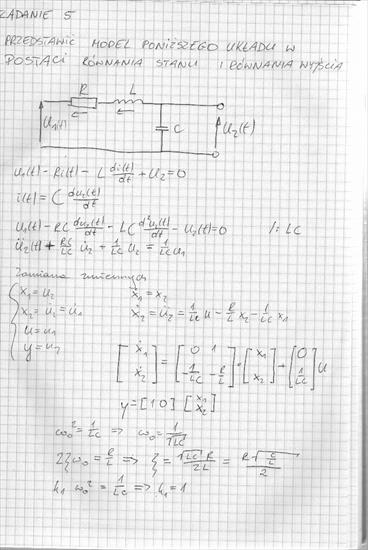 ZADANIE 5
PRZEDSTAWIĆ MODEL PONIŻSZEGO UKŁADU W
POSTACI RÓWNANIA STANU I RÓWNANIA WYJŚCIA
R L
U1(t) C U2(t)
u1(t) - Ri(t) - L di(t)/dt + U2 = 0
i(t) = C du2(t)/dt
U1(t) - RC du2(t)/dt - LC d²u2(t)/dt - U2(t) = 0 /: LC
ü2(t) + RC/LC u̇2 + 1/LC U2 = 1/LC u1
Zamiana zmiennych
x1 = u2 ẋ1 = x2
x2 = u̇2 = ẋ1 ẋ2 = ü2 = 1/LC u - R/L x2 - 1/LC x1
u = u1
y = u2
[ẋ1 ẋ2] = [0 1 -1/LC -R/L] · [x1 x2] + [0 1/LC] u
y = [1 0] [x1 x2]
ω0² = 1/LC => ω0 = 1/√LC
2ξω0 = R/L => ξ = √LC R/2L = R√(C/L)/2
k1 ω0² = 1/LC => k1 = 1